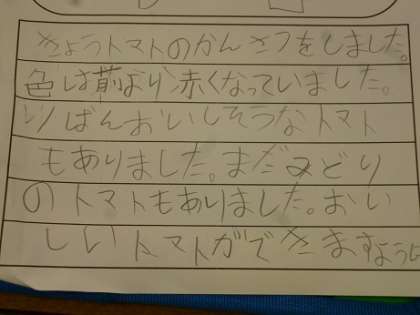 きょうトマトのかんさつをしました。
色は前より赤くなっていました。
いちばんおいしそうなトマト
もありました。まだみどり
のトマトもありました。おい
しいトマトができますように